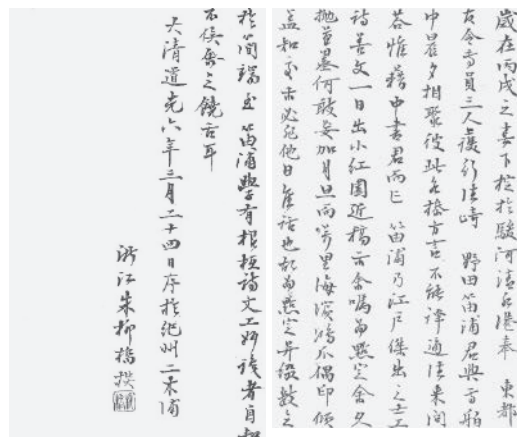 歲在丙戌之春下椗於駿河清水港奉 東都
令員三人護行崎 野田笛浦君與吾舶
中晨夕相聚彼此各操方言不能譯通往來問
答惟藉中書君而已 笛浦乃江戶傑出之士工
詩善文一日出小紅園近稿示余囑為點定余久
拋筆墨何敢妄加月旦而萍里海濱鴻爪偶印傾
蓋知交未必非他日話也故為點定并綴數
於簡端至 笛浦學有根柢詩文工妙讀者自知
不俟余之饒舌耳
大清道光六年三月二十四日序於紀州二木浦
浙江朱柳橋撰